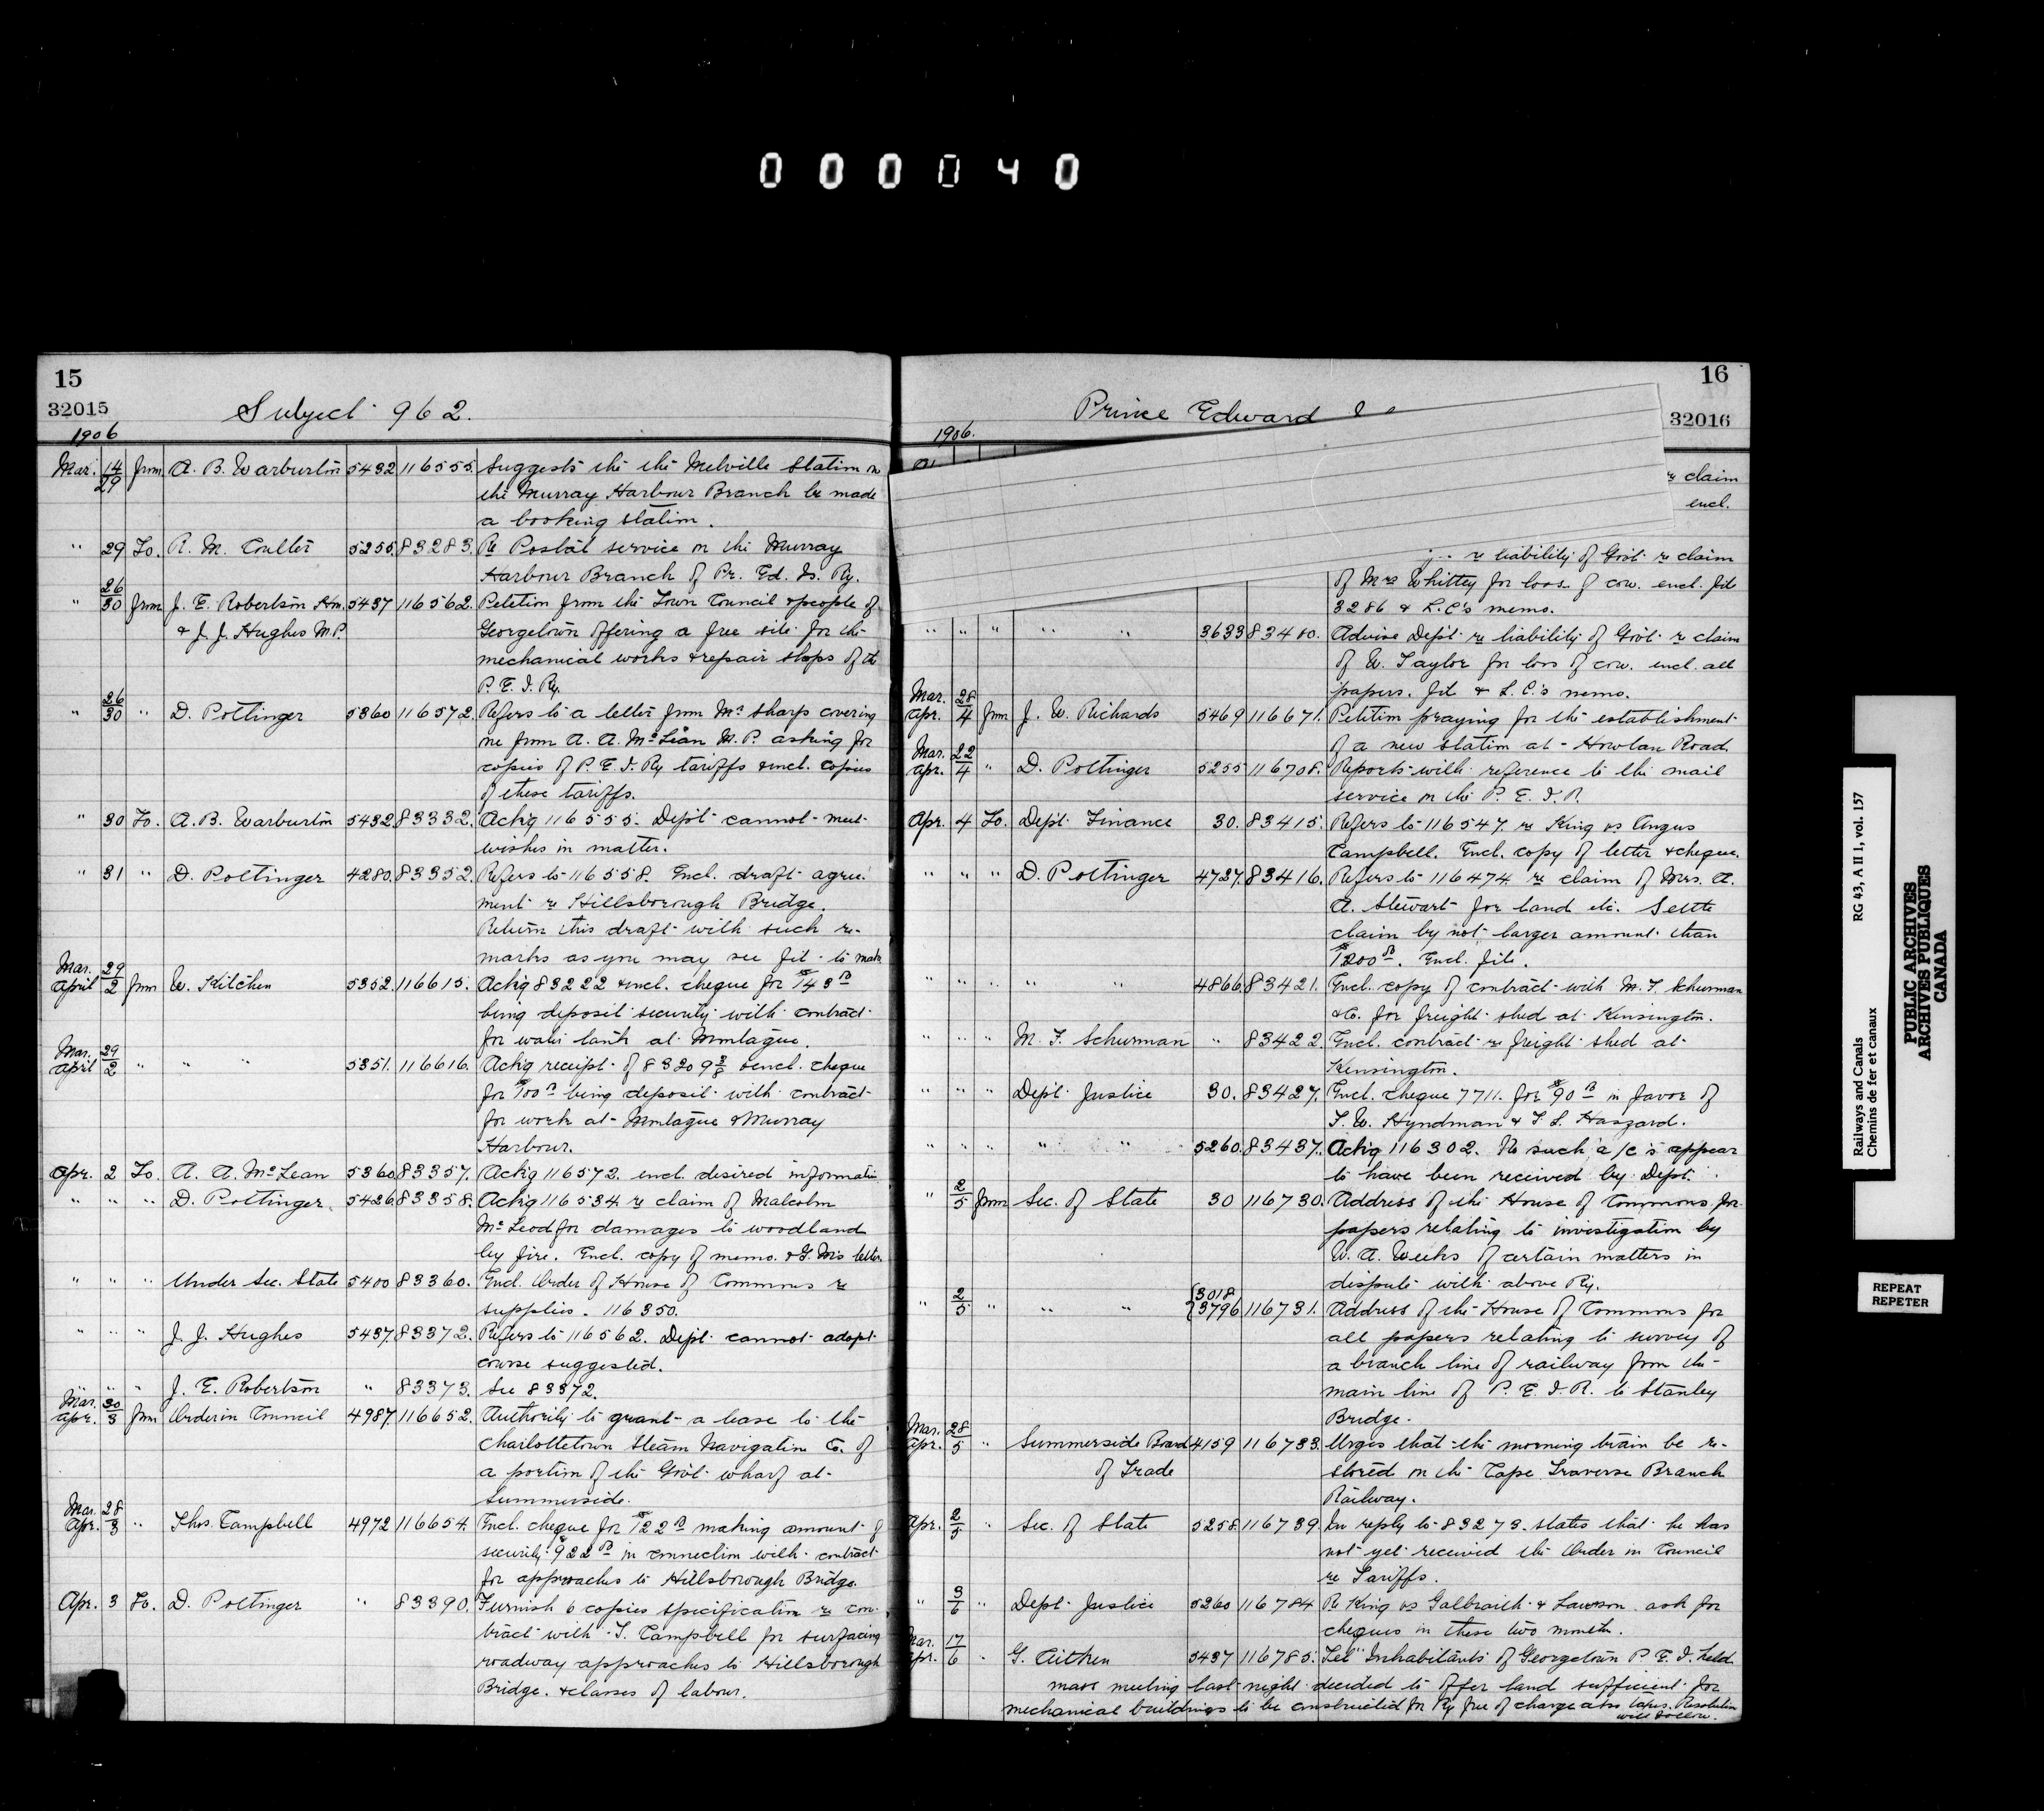 000040
15
32015
Subject 962.
1906
Mar. 14/29 from A. B. Warburton 5432 116555. Suggests the the Melville Station on
the Murray Harbour Branch be made
a booking station.
" 29 To. R. M. Coulter 5255. 83283. Re Postal service on the Murray
Harbour Branch of Pr. Ed. Is. Ry.
" 26/30 from J. E. Robertson Hon. 5437 116562. Petition from the Town Council & people of
& J. J. Hughes M.P. Georgetown offering a free site for the
mechanical works & repair shops of the
P. E. I. Ry.
" 26/30 " D. Pottinger 5360 116572. Refers to a letter from Mr Sharp covering
one from A. A. McLean M.P. asking for
copies of P. E. I. Ry tariffs & encl. copies
of these tariffs.
" 30 To. A. B. Warburton 5432 83332. Ackg 116555. Dept cannot meet
wishes in matter.
" 31 " D. Pottinger 4280. 83352. Refers to 116558. Encl. draft agree-
ment re Hillsborough Bridge.
Return this draft with such re-
marks as you may see fit to make
Mar. 29 April 2 from W. Kitchen 5352. 116615. Ackg 83222 & encl. cheque for $143 00
being deposit security with contract
for water tank at Montague.
Mar. 29 April 2 " " " 5351. 116616. Ackg receipt of 83209 3/8 & encl. cheque
for $100 00 being deposit with contract
for work at Montague & Murray
Harbour.
Apr. 2 To. A. A. McLean 5360 83357. Ackg 116572. encl. desired information
" " " D. Pottinger. 5426. 83358. Ackg 116534 re claim of Malcolm
McLeod for damages to woodland
by fire. Encl. copy of memo. & G. M's letter.
" " " Under Sec. State 5400 83360. Encl. Order of House of Commons re
supplies. 116350.
" " " J. J. Hughes 5437. 83372. Refers to 116562. Dept cannot adopt
course suggested.
" " " J. E. Robertson " 83373. See 83372.
Mar. 30 Apr. 3 from Order in Council 4987. 116652. Authority to grant a lease to the
Charlottetown Steam Navigation Co. of
a portion of the Gov't wharf at
Summerside.
Mar. 28 Apr. 3 " Thos. Campbell 4972 116654. Encl. cheque for $122 00 making amount of
security $922 00 in connection with contract
for approaches to Hillsborough Bridge.
Apr. 3 To. D. Pottinger " 83390. Furnish 6 copies specification re con-
tract with T. Campbell for surfacing
roadway approaches to Hillsborough
Bridge. & classes of labour.
16
32016
Prince Edward
1906.
re claim
encl.
re liability of Gov't re claim
of Mrs Whitty for loss of cow. encl. file
3286 & L.C's memo.
" " " " " 3633 83400. Advise Dept re liability of Gov't re claim
of W. Taylor for loss of cow. encl. all
papers. file & L.C.'s memo.
Mar. 28 Apr. 4 from J. W. Richards 5469 116671. Petition praying for the establishment
of a new station at Howlan Road
Mar. 22 Apr. 4 " D. Pottinger 5255 116708. Reports with reference to the mail
service on the P. E. I. R.
Apr. 4 To. Dept. Finance 30. 83415. Refers to 116547. re King vs Angus
Campbell. Encl. copy of letter & cheque.
" " " D. Pottinger 4727. 83416. Refers to 116474 re claim of Mrs. A.
A. Stewart for land etc. Settle
claim by not larger amount than
$1200 00. Encl. file.
" " " " " 4866 83421. Encl. copy of contract with M. F. Schurman
& Co. for freight shed at Kensington.
" " " M. F. Schurman " 83422. Encl. contract re freight shed at
Kensington.
" " " Dept. Justice 30. 83427. Encl. cheque 7711. for $90 00 in favor of
F. W. Hyndman & F. L. Haszard.
" " 5260. 83437. Ackg 116302. No such a/c's appear
to have been received by Dept.
" 2/5 from Sec. of State 30 116730. Address of the House of Commons for
papers relating to investigation by
W. A. Weeks of certain matters in
dispute with above Ry.
" 2/5 " " " {3018 3796 116731. Address of the House of Commons for
all papers relating to survey of
a branch line of railway from the
main line of P. E. I. R. to Stanley
Bridge.
Mar. 28 Apr. 5 " Summerside Board 4159 116733. Urges that the morning train be re-
of Trade stored on the Cape Traverse Branch
Railway.
Apr. 2/5 " Sec. of State 5258. 116739. In reply to 83273. states that he has
not yet received the Order in Council
re Tariffs.
" 3/6 " Dept. Justice 5260 116784 Re King vs Galbraith & Lawson. ask for
cheques in these two months.
Mar. 17 Apr. 6 " G. Aitken 5437 116785. Tel "Inhabitants of Georgetown P. E. I. held
mass meeting last night decided to offer land sufficient for
mechanical buildings to be constructed for Ry free of charge also taxes. Resolution
will follow.
Railways and Canals RG 43, A II 1, vol. 157
Chemins de fer et canaux
PUBLIC ARCHIVES
ARCHIVES PUBLIQUES
CANADA
REPEAT
REPETER